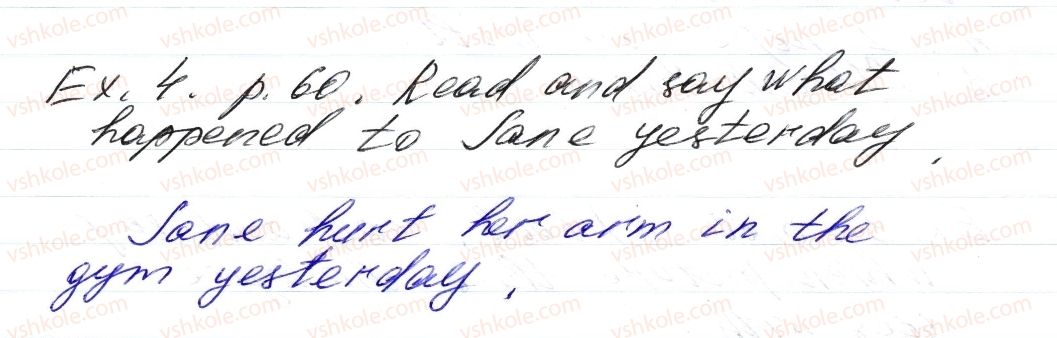 Ex. 4. p. 60. Read and say what
happened to Jane yesterday.
Jane hurt her arm in the
gym yesterday.